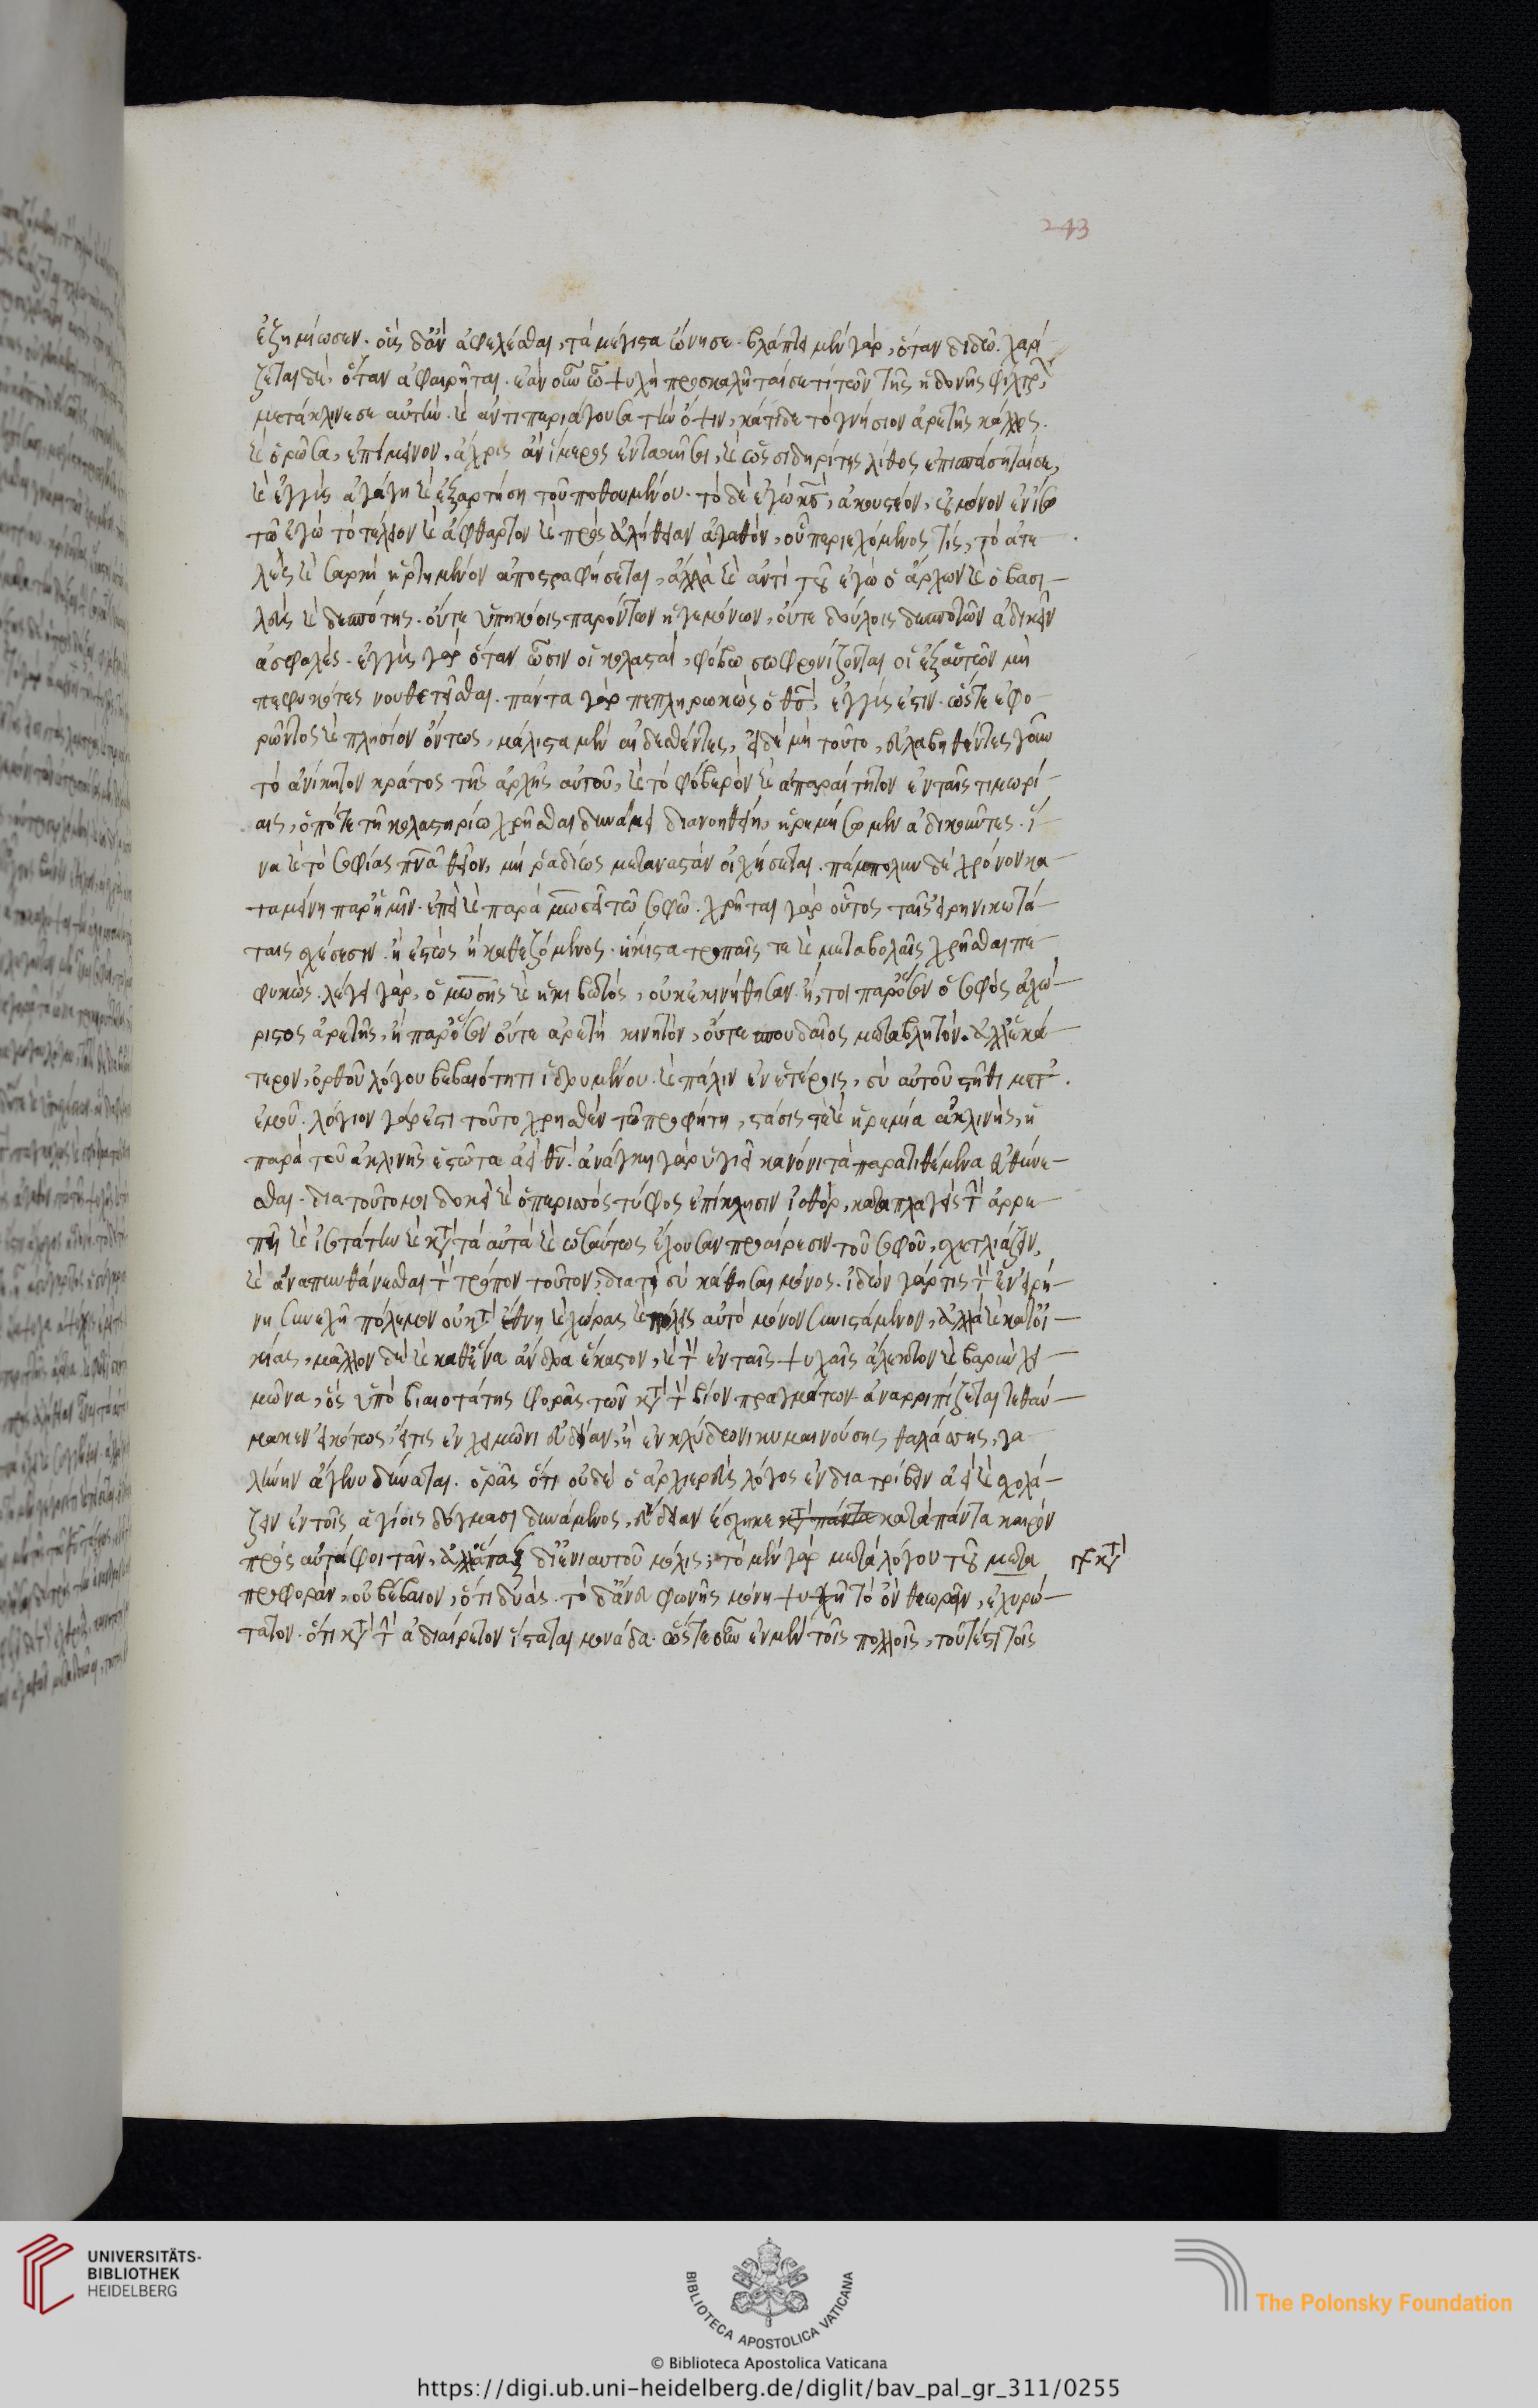 ἐζημίωσεν. οἷς δ' ἂν ἀφελέσθαι, τὰ μέγιστα ὤνησε. βλάπτει μὲν γὰρ, ὅταν διδῷ. χαρί-
ζεται δὲ, ὅταν ἀφαιρῆται. ἐὰν οὖν ὦ ψυχὴ προσκαλῆταί σε τί τῶν τῆς ἡδονῆς φίλτρ
μετάκλινε σε αυτὴν. καὶ ἀντιπεριάγουσα τὴν ὄψιν, κάτιδε τὸ γνήσιον ἀρετῆς κάλλος.
καὶ ὁρῶσα, ἐπίμεινον, ἄχρις ἂν ἵμερος ἐντακῆ σοι, καὶ ὡς σιδηρίτης λίθος ἐπισπάσηταί σε,
καὶ ἐγγὺς ἀγάγη καὶ ἐξαρτήση τοῦ ποθουμένου. τὸ δὲ ἐγὼ κς, ἀκουστέον, οὐ μόνον ἐν ἴσω
τῶ ἐγὼ τὸ τέλειον καὶ ἄφθαρτον καὶ πρὸς ἀλήθειαν ἀγαθὸν, οὗ περιεχόμενος τίς, τὸ ἀτε
λὲς καὶ σαρκὶ ἠρτημένον ἀποστραφήσεται, ἀλλὰ καὶ ἀντὶ τοῦ ἐγὼ ὁ ἄρχων καὶ ὁ βασι-
λεὺς καὶ δεσπότης. οὔτε ὑπηκόοις παρόντων ἡγεμόνων, οὔτε δούλοις δεσποτῶν ἀδικεῖν
ἀσφαλές. ἐγγὺς γὰρ ὅταν ὦσιν οἱ κολασταὶ, φόβω σωφρονίζονται οἱ ἐξ αὑτῶν μὴ
πεφυκότες νουθετεῖσθαι. πάντα γὰρ πεπληρωκὼς ὁ θς, ἐγγύς ἐστιν. ὥστε ἐφο-
ρῶντος καὶ πλησίον ὄντως, μάλιστα μὲν αἰδεσθέντες, εἰ δὲ μὴ τοῦτο, εὐλαβηθέντες γοῦν
τὸ ἀνίκητον κράτος τῆς ἀρχῆς αὐτοῦ, καὶ τὸ φοβερὸν καὶ ἀπαραίτητον ἐν ταῖς τιμωρί-
αις, ὁπότε τῆ κολαστηρίω χρῆσθαι δυνάμει διανοηθείη, ἠρεμήσωμεν ἀδικοῦντες. ἵ-
να καὶ τὸ σοφίας πνα θεῖον, μὴ ῥαδίως μεταναστὰν οἰχήσεται. πάμπολυν δὲ χρόνον κα-
ταμείνη παρ' ἡμῖν. ἐπεὶ καὶ παρὰ μωσεῖ τῶ σοφῶ. χρῆται γὰρ οὗτος ταῖς εἰρηνικωτά-
ταις σχέσεσιν. ἢ ἑστὼς ἢ καθεζόμενος. ἥκιστα τροπαῖς τε καὶ μεταβολαῖς χρῆσθαι πε-
φυκὼς. λέγει γὰρ, ὁ μωσῆς καὶ ἡ κιβωτός, οὐκ ἐκινήθησαν. ἤ, τοι παρόσον ὁ σοφὸς ἀχώ-
ριστος ἀρετῆς, ἢ παρόσον οὔτε ἀρετὴ κινητόν, οὔτε σπουδαῖος μεταβλητόν. ἀλλ' ἑκά
τερον, ὀρθοῦ λόγου βεβαιότητι ἱδρυμένου. καὶ πάλιν ἐν ἑτέροις, σὺ αὐτοῦ στῆθι μετ'
ἐμοῦ. λόγιον γάρ ἐστι τοῦτο χρησθὲν τῶ προφήτη, στάσις τὲ καὶ ἠρεμία ἀκλινής, ἡ
παρὰ τοῦ ἀκλινῆς ἑστῶτα ἀεὶ θν. ἀνάγκη γὰρ ὑγιεῖ κανόνι τὰ παρατιθέμενα εὐθύνε-
σθαι. δια τοῦτο μοι δοκεῖ καὶ ὁ περισσὸς τύφος ἐπίκλησιν ἰοθόρ, καταπλαγεὶς τὴν ἀρρε
πῆ καὶ ἰσοτάτην καὶ κατὰ τὰ αὐτὰ καὶ ὡσαύτως ἔχουσαν προαίρεσιν τοῦ σοφοῦ, σχετλιάζειν,
καὶ ἀναπυνθάνεσθαι τὸν τρόπον τοῦτον, διατί σὺ κάθησαι μόνος. ἰδὼν γάρ τις τὸν ἐν εἰρή-
νη συνεχῆ πόλεμον οὐ κατὰ ἔθνη καὶ χώρας καὶ πόλεις αὐτὸ μόνον συνιστάμενον, ἀλλὰ καὶ κατ' οἰ-
κίας, μᾶλλον δὲ καὶ καθ' ἕνα ἄνδρα ἕκαστον, καὶ τὸν ἐν ταῖς ψυχαῖς ἄλεκτον καὶ βαρὺν χει-
μῶνα, ὃς ὑπὸ βιαιοτάτης φορᾶς τῶν κατὰ τὸν βίον πραγμάτων ἀναρριπίζεται τεθαύ-
μακεν εἰκότως, εἴ τις ἐν χειμῶνι εὐδίαν, ἢ ἐν κλύδωνι κυμαινούσης θαλάσσης, γα-
λήνην ἄγειν δύναται. ὁρᾶς ὅτι οὐδὲ ὁ ἀρχιερεὺς λόγος ἐνδιατρίβειν ἀεὶ καὶ σχολά-
ζειν ἐν τοῖς ἁγίοις δόγμασι δυνάμενος, εὐδίαν ἔσχηκε κατὰ πάντα κατὰ πάντα καιρὸν
πρὸς αὐτὰ φοιτᾶν, ἀλλ' ἅπαξ δι' ἐνιαυτοῦ μόλις, τὸ μὲν γὰρ μετὰ λόγου τοῦ μετα
προφορὰν, οὐ βέβαιον, ὅτι δυάς. τὸ δ' ἄνευ φωνῆς μόνη ψυχῆ τὸ ὂν θεωρεῖν, ἐχυρώ-
τατον. ὅτι κατὰ τὴν ἀδιαίρετον ἵσταται μονάδα. ὥστε οὖν ἐν μὲν τοῖς πολλοῖς, τουτέστι τοῖς
UNIVERSITÄTS-
BIBLIOTHEK
HEIDELBERG
BIBLIOTECA APOSTOLICA VATICANA
The Polonsky Foundation
© Biblioteca Apostolica Vaticana
https://digi.ub.uni-heidelberg.de/diglit/bav_pal_gr_311/0255